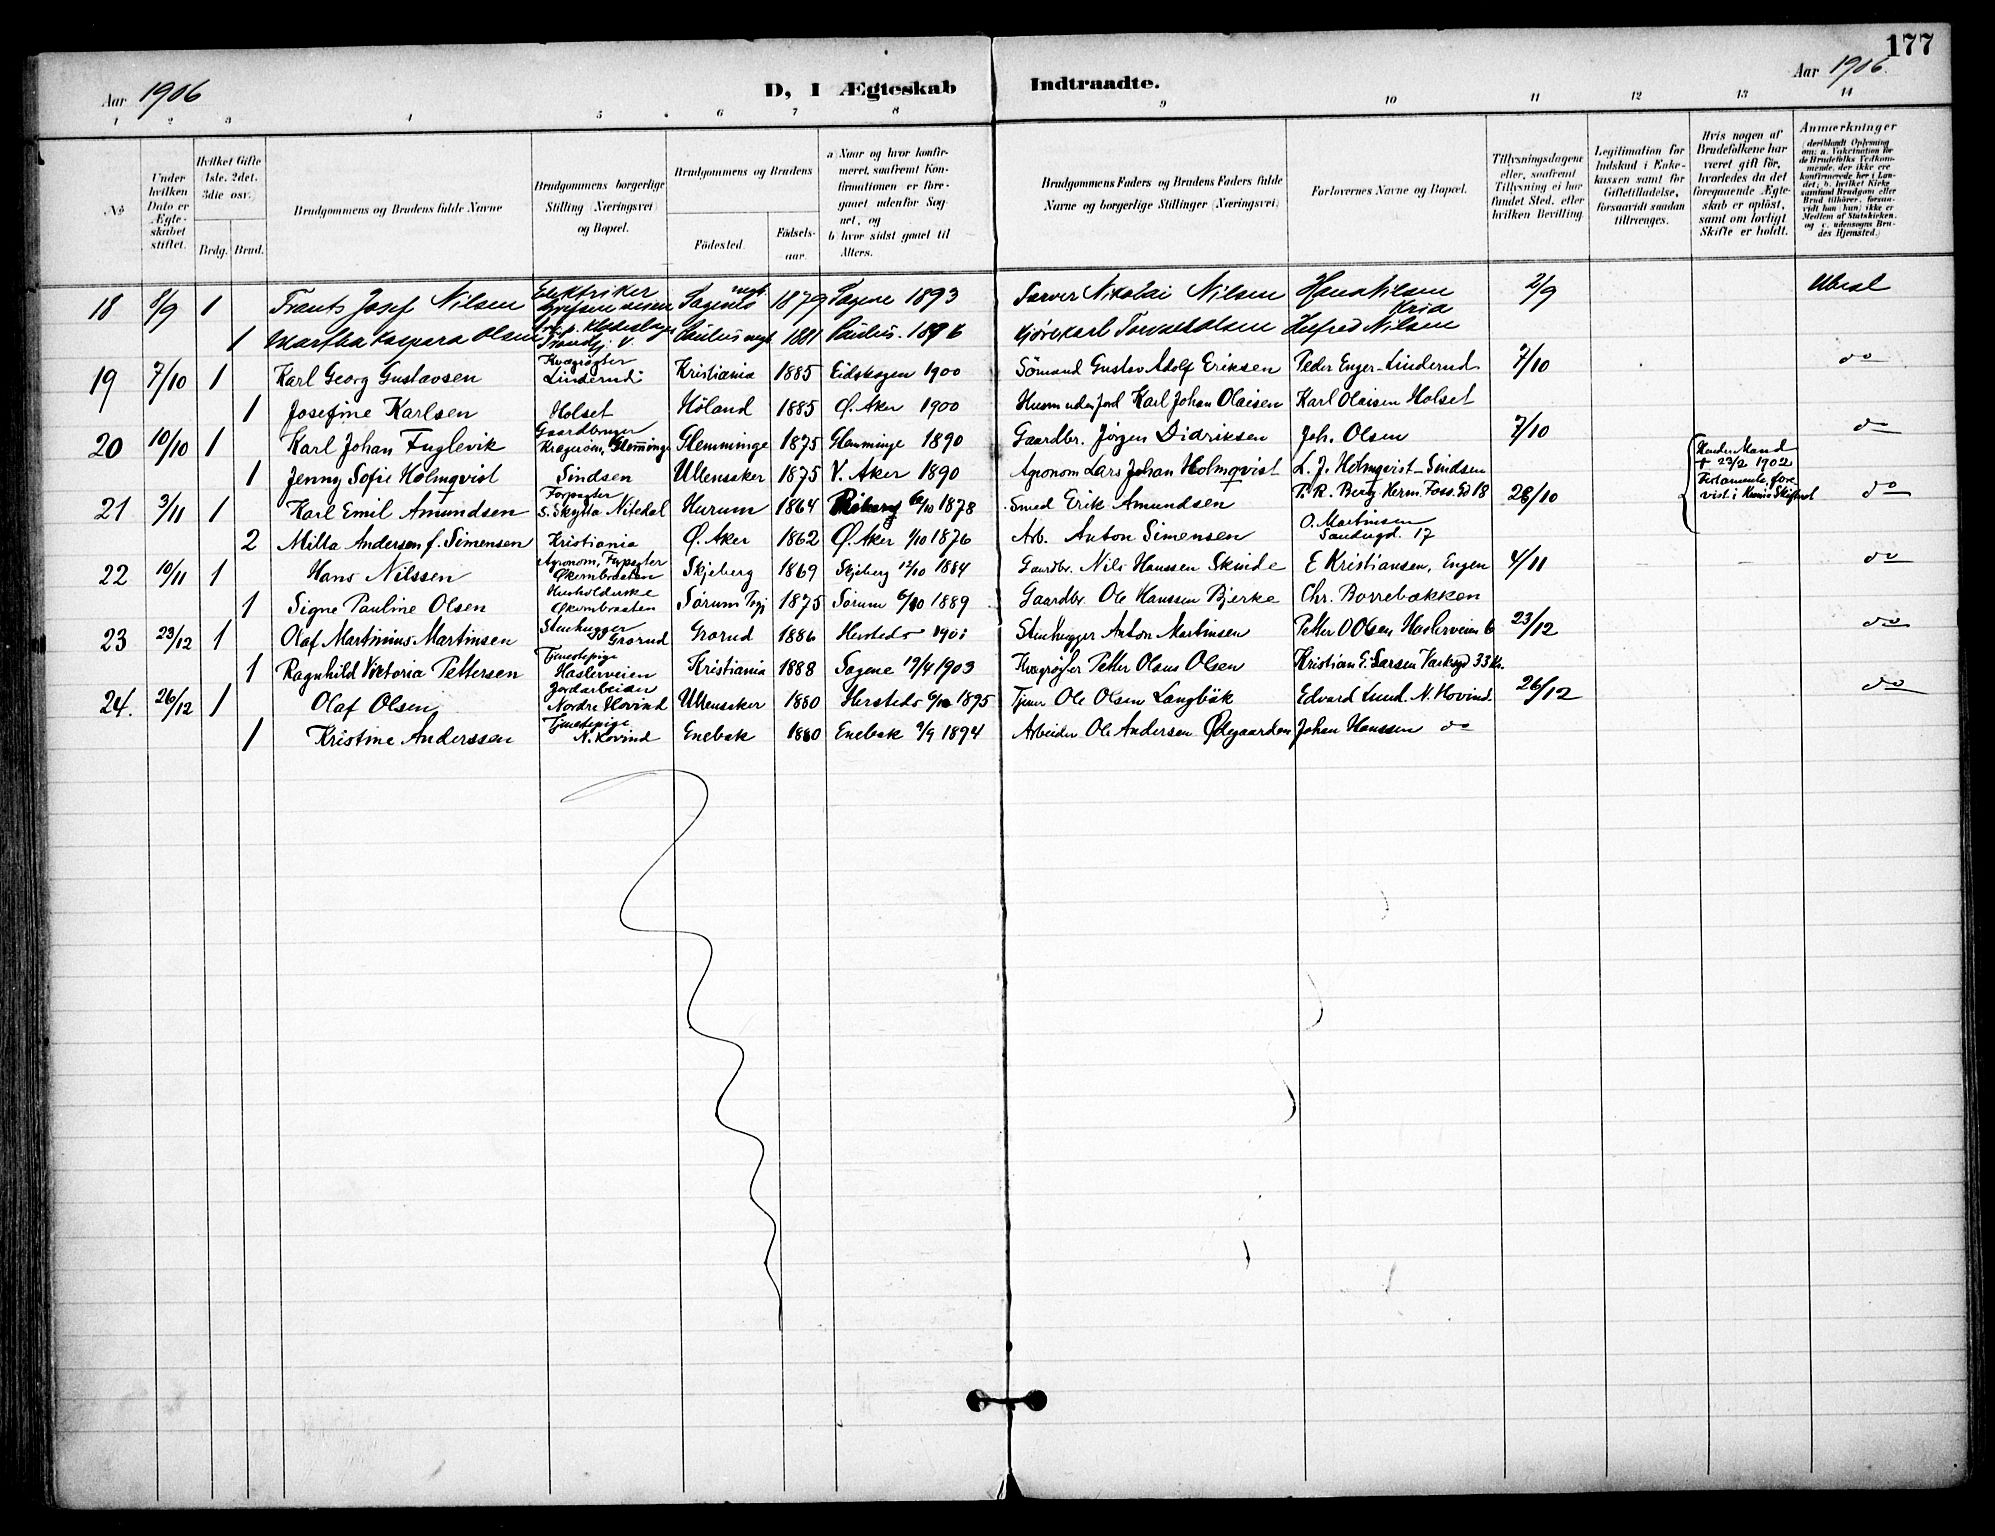 177
Aar 1906
D, I Ægteskab Indtraadte.
Aar 1906.
1 2 3 4 5 6 7 8 9 10 11 12 13 14
№
Under hvilken Dato er Ægteskabet stiftet.
Hvilket Gifte 1ste, 2det, 3die osv.
Brdg. Brud.
Brudgommens og Brudens fulde Navne
Brudgommens borgerlige Stilling (Næringsvei) og Bopæl.
Brudgommens og Brudens
Födested. Födsels-aar.
a) Naar og hvor konfirmeret, saafremt Konfirmationen er foregaaet udenfor Sognet, og
b) hvor sidst gaaet til Alters.
Brudgommens Faders og Brudens Faders fulde Navne og borgerlige Stillinger (Næringsvei)
Forlovernes Navne og Bopæl.
Tillysningsdagene eller, saafremt Tillysning ei har fundet Sted, efter hvilken Bevilling.
Legitimation for Indskud i Enkekassen samt for Giftetilladelse, forsaavidt saadan tiltrænges.
Hvis nogen af Brudefolkene har været gift för, hvorledes da det foregaaende Ægteskab er oplöst, samt om lovligt Skifte er holdt.
Anmærkninger
18 8/9 1 Frants Josef Nilsen Elektriker Sagenes 1879 Sagene 1893 Farver Nikolai Nilsen Hans Nilsen Kria 2/9 Ubesl
1 Martha Kaspara Olsen Paulus 1881 Paulus 1896 Kjørekarl Olsen Helfred Nilsen
19 7/10 1 Karl Georg Gustavsen Kvægrøgter Linderud 1885 Kristiania Eidskogen 1900 Sömand Gustav Adolf Eriksen Peder Enger-Linderud 7/10 do
1 Josefine Karlsen Holset Höland 1885 Ø. Aker 1900 Husm uden jord Karl Johan Olaisen Karl Olaisen Holset
20 10/10 1 Karl Johan Fuglevik Gaardbruger Kragerøm, Glemminge Glemminge 1875 Glemminge 1890 Gaardbr. Jörgen Didriksen Joh. Olsen 7/10 do
1 Jenny Sofie Holmqvist Sindsen Ullensaker 1875 V. Aker 1890 Agronom Lars Johan Holmqvist L. J. Holmqvist-Sindsen
21 3/11 1 Karl Emil Amundsen Forpagter S. Skytta Nitedal Hurum 1864 6/10 1878 Smed Erik Amundsen P. R. Berg Herm. Foss. Gd 18 28/10 Hendes Mand + 23/2 1902 Testamente forevist i Skifteret do
2 Milla Andersen f. Simensen Kristiania Ø. Aker 1862 Ø. Aker 1/10 1876 Arb. Anton Simensen O. Martinsen Sandugd. 17
22 10/11 1 Hans Nilssen Agronom, Forpagter Økernbraaten Skjeberg 1869 Skjeberg 12/10 1884 Gaardbr. Nils Hanssen Skinde E Kristiansen, Engen 4/11 do
1 Signe Pauline Olsen Husholderske Økernbraaten Sörum 1875 Sörum 6/10 1889 Gaardbr. Ole Hanssen Bjerke Chr. Borrebækken
23 23/12 1 Olaf Martinius Martinsen Stenhugger Grorud Grorud 1886 Herstedo 1901 Stenhugger Anton Martinsen Petter O Olsen Haslerveien 6 23/12 do
1 Ragnhild Viktoria Pettersen Tjenestepige Haslerveien Kristiania 1888 Sagene 19/4 1903 Kvægrögter Petter Olaus Olsen Kristian G. Larsen 33
24. 26/12 1 Olaf Olsen Jordarbeider Nordre Hovind Ullensaker 1880 Herstedo 6/10 1895 Tjener Ole Olsen Langbäk Edvard Lund. N. Hovind. 26/12 do
1 Kristine Anderssen Tjenestepige N. Hovind Enebak 1880 Enebak 9/9 1894 Arbeider Ole Andersen Ødegaarden Johan Hanssen do